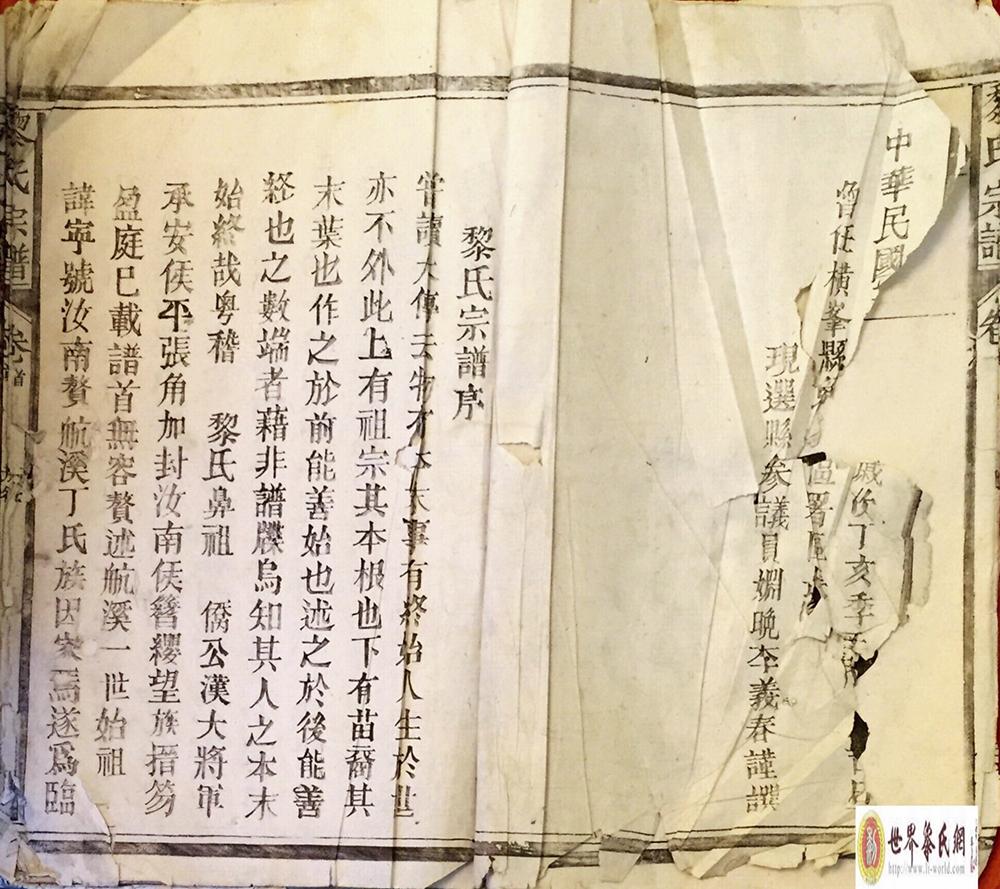 黎氏宗譜
中華民國
歲次丁亥季
曾任橫峯縣
區署區
現選縣叅議員姻晚李義春謹譔
黎氏宗譜序
嘗讀大傳云物有本末事有終始人生於世
亦不外此上有祖宗其本根也下有苗裔其
末葉也作之於前能善始也述之於後能善
終也之數端者藉非譜牒烏知其人之本末
始終哉粤稽 黎氏鼻祖 僑公漢大將軍
承安侯平張角加封汝南侯簪纓望族搢笏
盈庭已載譜首無容贅述航溪一世始祖
諱寧號汝南贅航溪丁氏族因家焉遂爲臨
黎氏宗譜 卷首
世界黎氏網
http://www.li-world.com